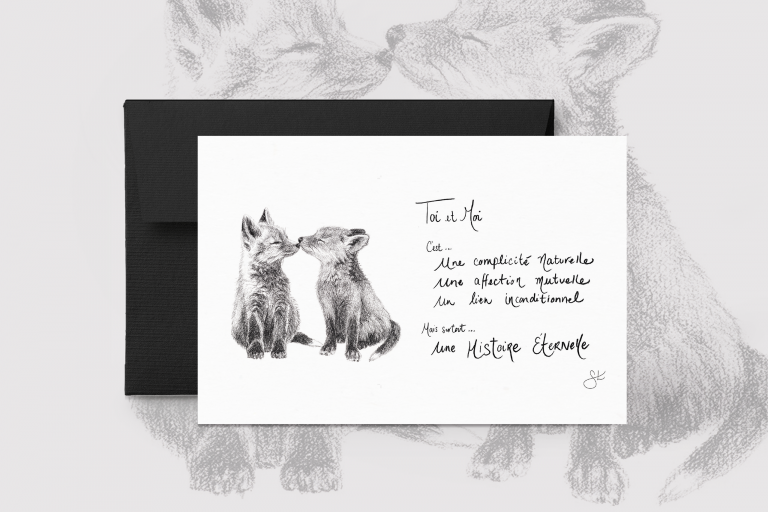 Toi et Moi
C'est...
Une complicité Naturelle
Une affection mutuelle
Un lien inconditionnel
Mais surtout...
Une Histoire Éternelle